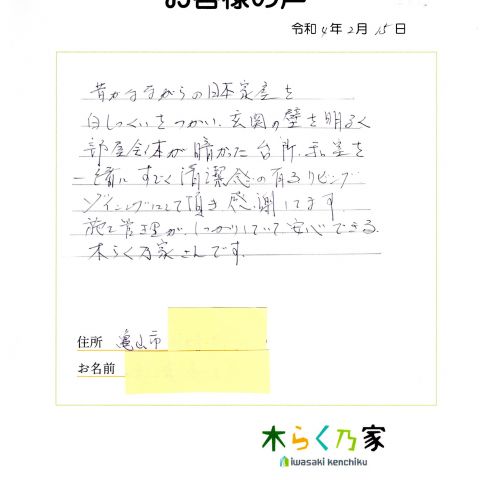 お客様の声
令和4年2月15日
昔ながらの日本家屋を
白しっくいをつかい、玄関の壁を明るく
部屋全体が暗かった台所、和室を
一緒にすごく清潔感の有るリビング
ダイニングにして頂き感謝してます。
施工管理が、しっかりしていて安心できる
木らく乃家さんです。
住所 亀山市
お名前
木らく乃家
iwasaki kenchiku